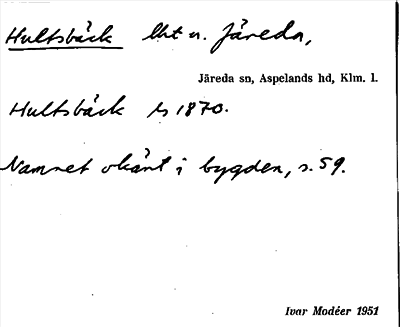 Hultsbäck lht u. Järeda,
Järeda sn, Aspelands hd, Klm. l.
Hultsbäck 1870.
Namnet okänt i bygden, s. 59.
Ivar Modéer 1951